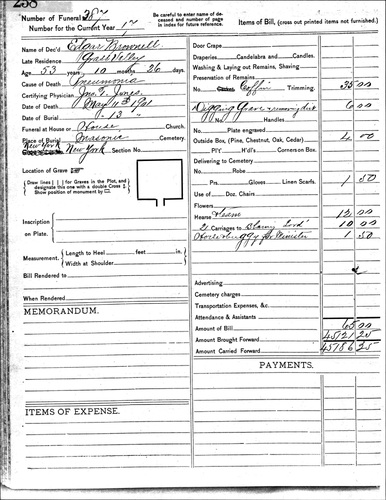 238
Number of Funeral 387
Number for the Current Year 17
Be careful to enter name of deceased and number of page in index for future reference.
Items of Bill, (cross out printed items not furnished.)
Name of Dec'd Edgar Brownell
Late Residence Grass Valley
Age 53 years 10 months 26 days.
Cause of Death Pneumonia
Certifying Physician Jno. T. Jones
Date of Death May 10th 1901
Date of Burial " 13 "
Funeral at House or House Church.
Place of Burial Masonic Cemetery.
New York New York Section No.
Location of Grave
Draw lines | | for Graves in the Plot, and designate this one with a double Cross
Show position of monument by
Inscription on Plate.
Measurement, Length to Heel feet in.
Width at Shoulder
Bill Rendered to
When Rendered
MEMORANDUM.
ITEMS OF EXPENSE.
Door Crape
Draperies Candelabra and Candles.
Washing & Laying out Remains, Shaving
Preservation of Remains
No. Coffin Trimming. 35 00
Digging Grave 6 00
No. Handles
Plate engraved
Outside Box, (Pine, Chestnut, Oak, Cedar) 4 00
P/V. H'd's Corners on Box.
Delivering to Cemetery
No. Robe
Prs. Gloves Linen Scarfs. 1 50
Use of Doz. Chairs
Flowers
Hearse Hearse 12 00
2 Carriages to 10 00
Horse & buggy for Minister 1 50
Advertising
Cemetery charges
Transportation Expenses, &c.
Attendance & Assistants
Amount of Bill 65 00
Amount Brought Forward 45721 25
Amount Carried Forward 45786 25
PAYMENTS.